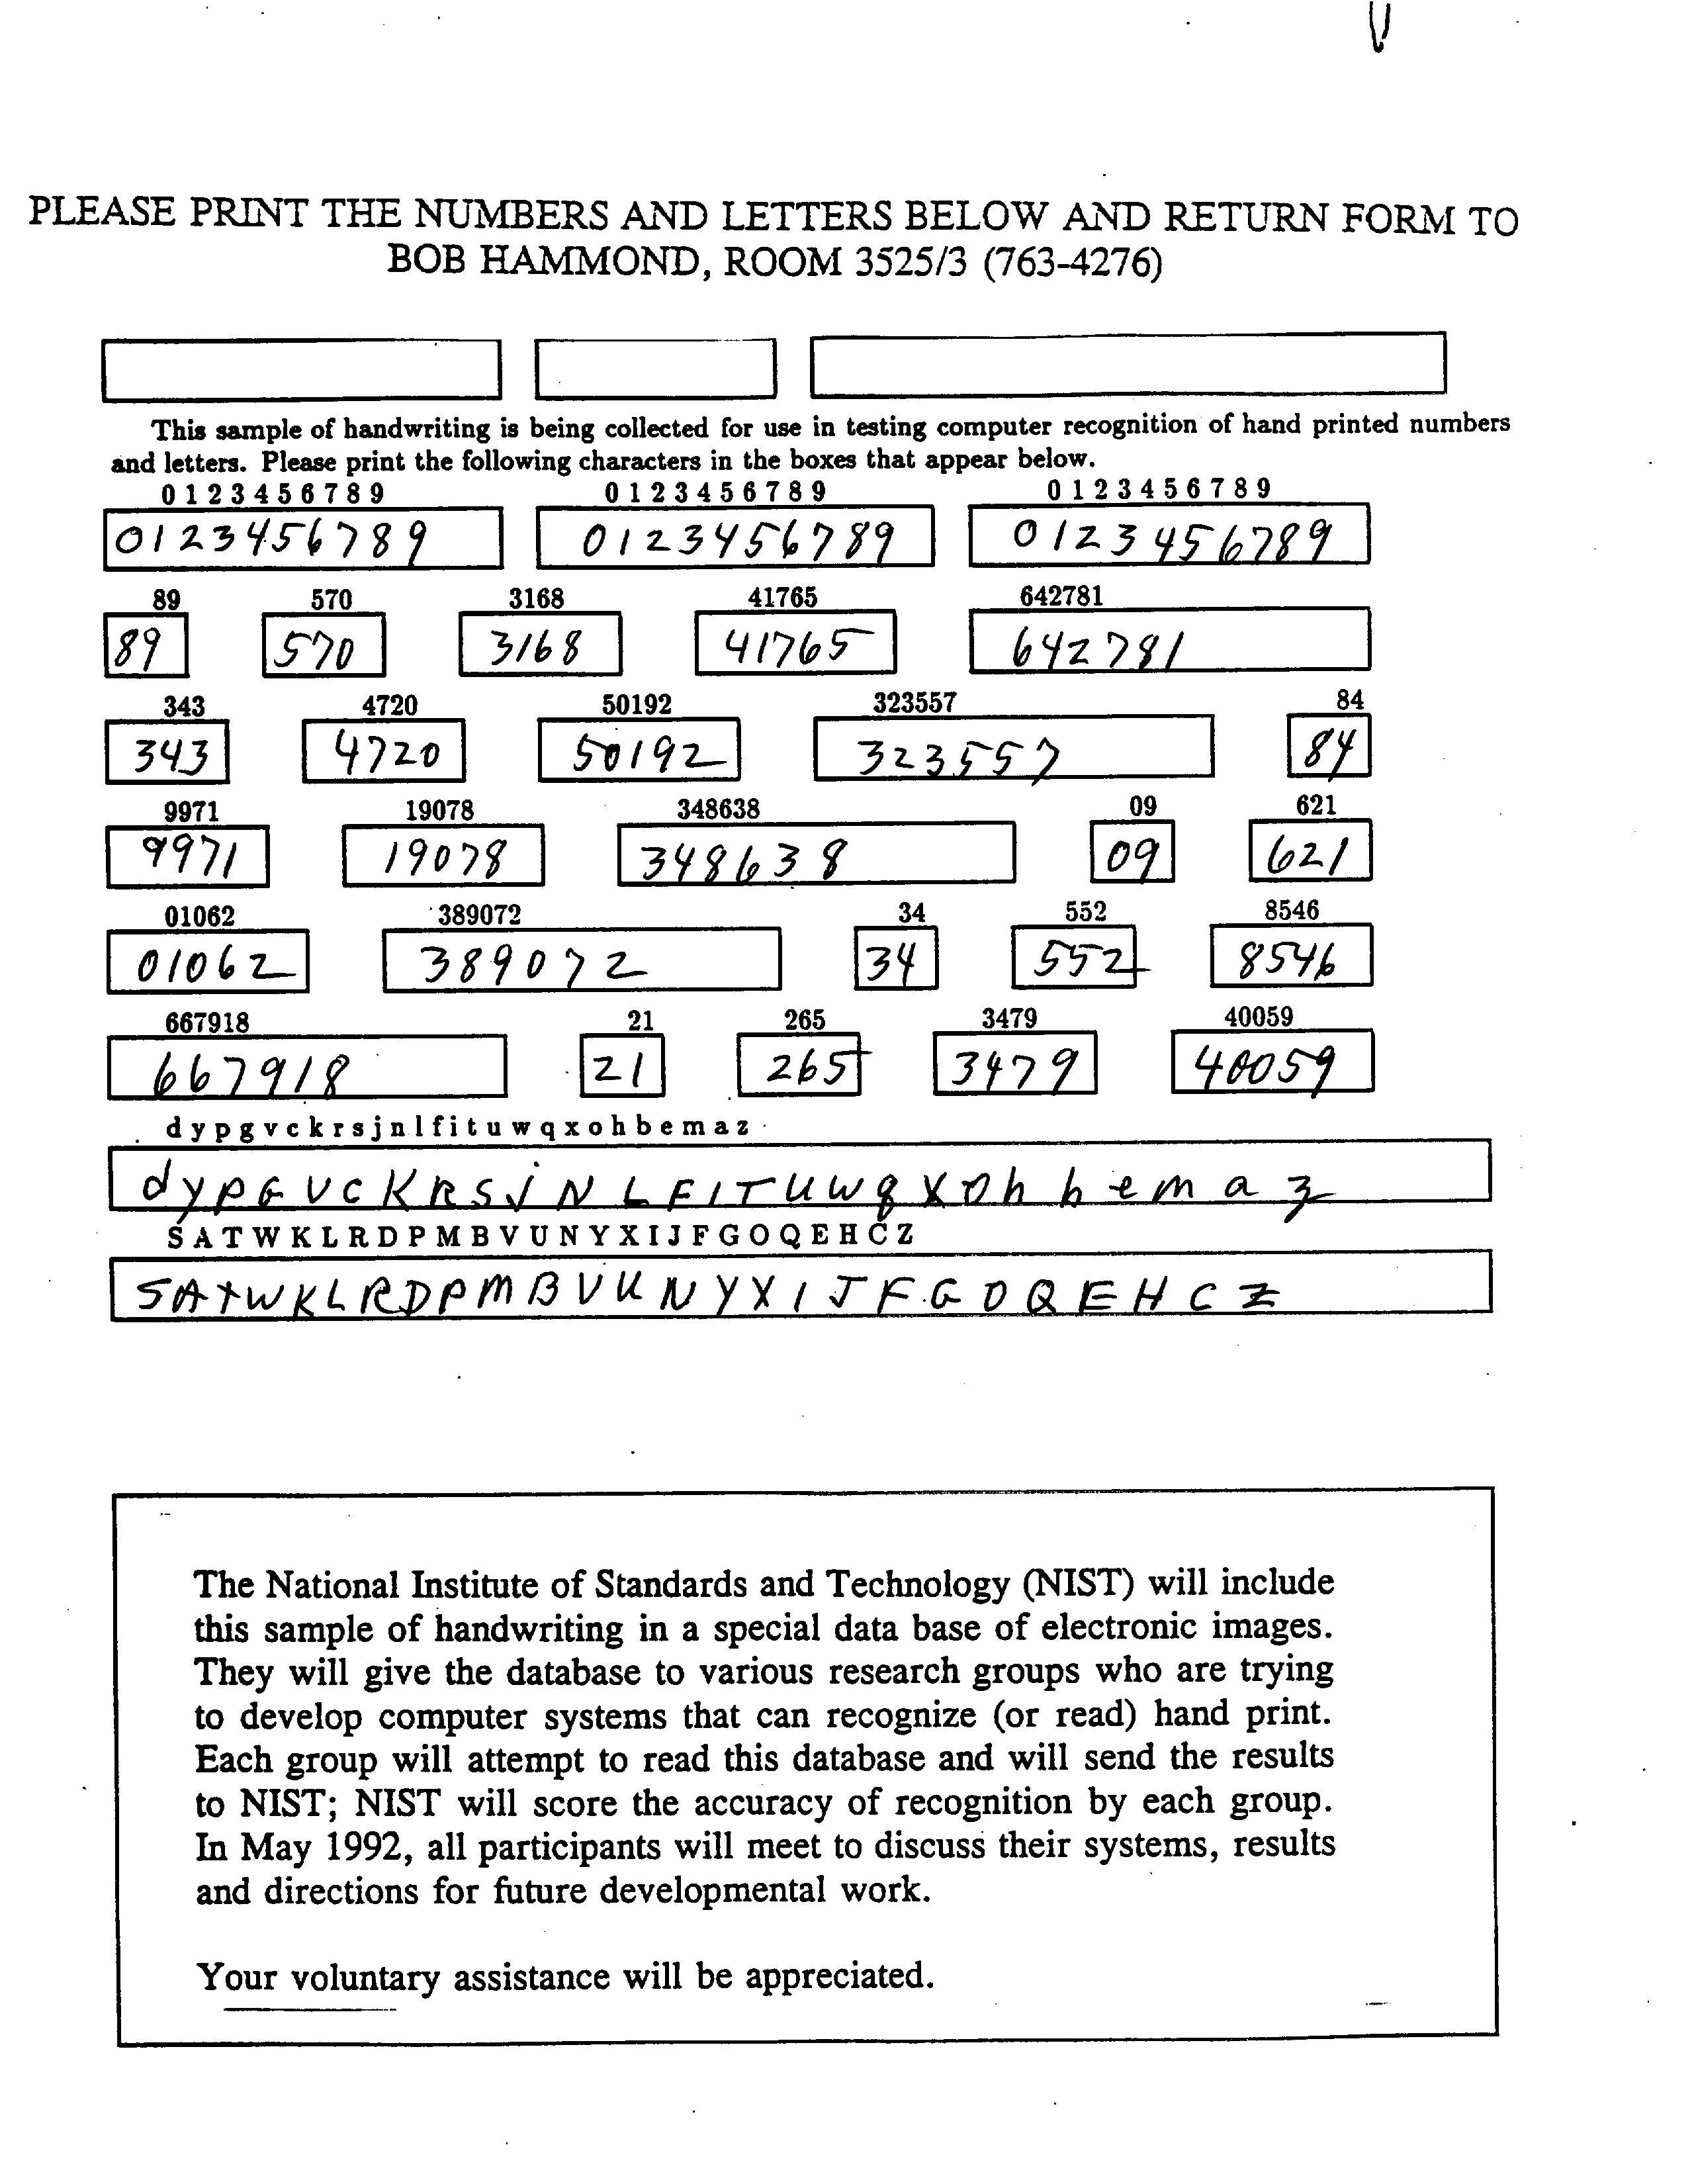 PLEASE PRINT THE NUMBERS AND LETTERS BELOW AND RETURN FORM TO
BOB HAMMOND, ROOM 3525/3 (763-4276)
This sample of handwriting is being collected for use in testing computer recognition of hand printed numbers
and letters. Please print the following characters in the boxes that appear below.
0 1 2 3 4 5 6 7 8 9 0 1 2 3 4 5 6 7 8 9 0 1 2 3 4 5 6 7 8 9
0123456789 0123456789 0123456789
89 570 3168 41765 642781
89 570 3168 41765 642781
343 4720 50192 323557 84
343 4720 50192 323557 84
9971 19078 348638 09 621
9971 19078 348638 09 621
01062 389072 34 552 8546
01062 389072 34 552 8546
667918 21 265 3479 40059
667918 21 265 3479 40059
d y p g v c k r s j n l f i t u w q x o h b e m a z
d y p G V C K R S j N L F I T U W q X O h b e m a z
S A T W K L R D P M B V U N Y X I J F G O Q E H C Z
S A T W K L R D P M B V U N Y X I J F G O Q E H C Z
The National Institute of Standards and Technology (NIST) will include
this sample of handwriting in a special data base of electronic images.
They will give the database to various research groups who are trying
to develop computer systems that can recognize (or read) hand print.
Each group will attempt to read this database and will send the results
to NIST; NIST will score the accuracy of recognition by each group.
In May 1992, all participants will meet to discuss their systems, results
and directions for future developmental work.
Your voluntary assistance will be appreciated.